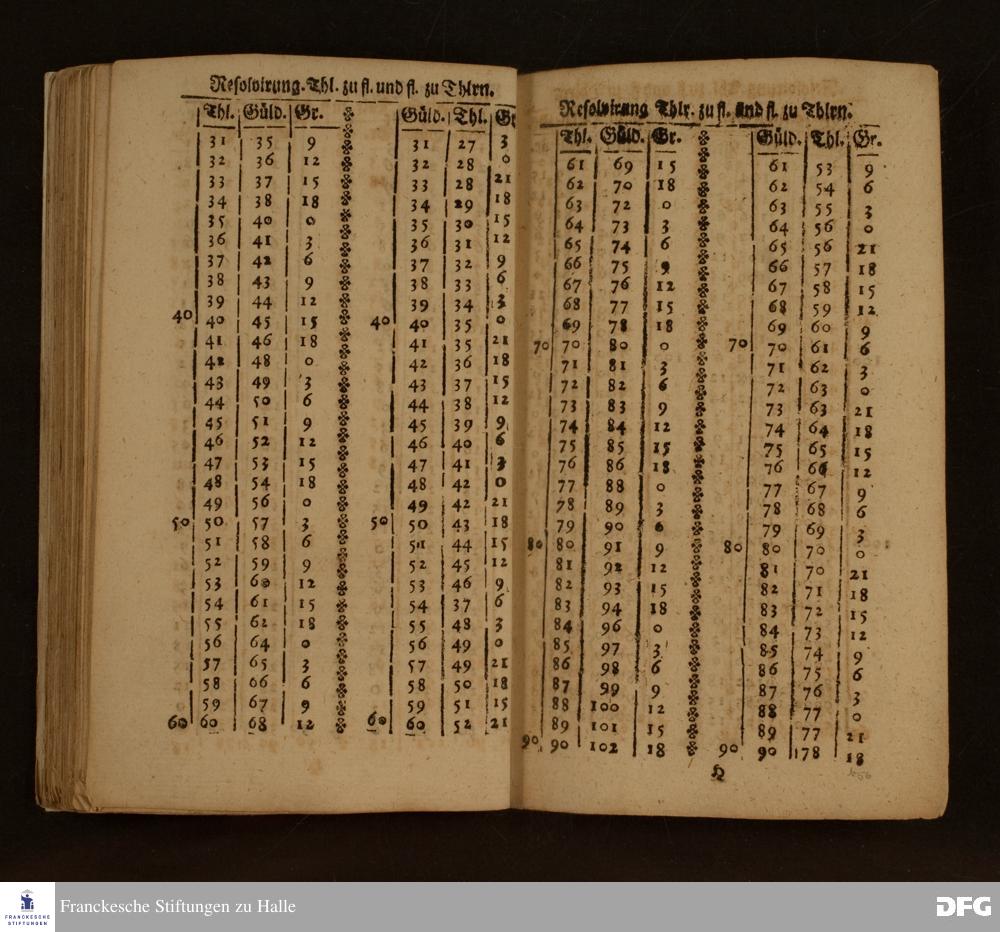 Resolvirung. Thl. zu fl. und fl. zu Thlrn.
Thl. Güld. Gr. Güld. Thl. Gr
31 35 9 31 27 3
32 36 12 32 28 0
33 37 15 33 28 21
34 38 18 34 29 18
35 40 0 35 30 15
36 41 3 36 31 12
37 42 6 37 32 9
38 43 9 38 33 6
39 44 12 39 34 3
40 40 45 15 40 40 35 0
41 46 18 41 35 21
42 48 0 42 36 18
43 49 3 43 37 15
44 50 6 44 38 12
45 51 9 45 39 9
46 52 12 46 40 6
47 53 15 47 41 3
48 54 18 48 42 0
49 56 0 49 42 21
50 50 57 3 50 50 43 18
51 58 6 51 44 15
52 59 9 52 45 12
53 60 12 53 46 9
54 61 15 54 37 6
55 62 18 55 48 3
56 64 0 56 49 0
57 65 3 57 49 21
58 66 6 58 50 18
59 67 9 59 51 15
60 60 68 12 60 60 52 21
Resolvirung Thlr. zu fl. und fl. zu Thlrn.
Thl. Güld. Gr. Güld. Thl. Gr.
61 69 15 61 53 9
62 70 18 62 54 6
63 72 0 63 55 3
64 73 3 64 56 0
65 74 6 65 56 21
66 75 9 66 57 18
67 76 12 67 58 15
68 77 15 68 59 12
69 78 18 69 60 9
70 70 80 0 70 70 61 6
71 81 3 71 62 3
72 82 6 72 63 0
73 83 9 73 63 21
74 84 12 74 64 18
75 85 15 75 65 15
76 86 18 76 66 12
77 88 0 77 67 9
78 89 3 78 68 6
79 90 6 79 69 3
80 80 91 9 80 80 70 0
81 92 12 81 70 21
82 93 15 82 71 18
83 94 18 83 72 15
84 96 0 84 73 12
85 97 3 85 74 9
86 98 6 86 75 6
87 99 9 87 76 3
88 100 12 88 77 0
89 101 15 89 77 21
90 90 102 18 90 90 78 18
H
Franckesche Stiftungen zu Halle
FRANCKESCHE
STIFTUNGEN
DFG